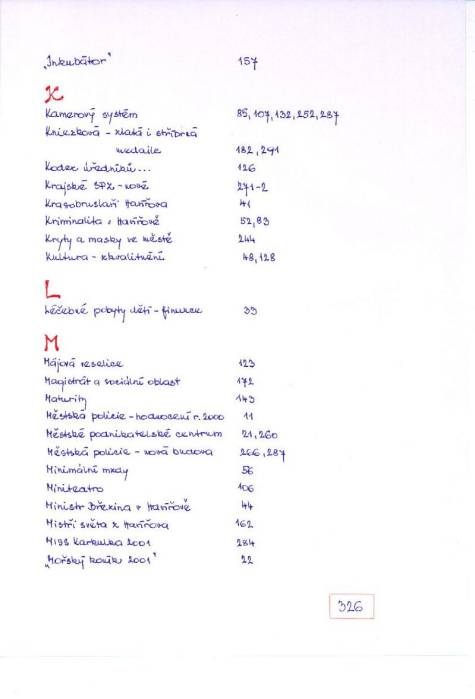 "Inkubátor" 157
K
Kamerový systém 85, 107, 132, 252, 287
Kniezková - zlatá i stříbrná
medaile 182, 291
Kodex úředníků... 126
Krajské SPZ - nové 271-2
Krasobruslaři Havířova 41
Kriminalita v Havířově 52, 83
Kryty a masky ve městě 244
Kultura - zkvalitnění 48, 128
L
Léčebné pobyty dětí - finance 33
M
Májová veselice 123
Magistrát a sociální oblast 172
Maturity 143
Městská policie - hodnocení r. 2000 11
Městské podnikatelské centrum 21, 260
Městská policie - nová budova 266, 287
Minimální mzdy 56
Miniteatro 106
Ministr Březina v Havířově 44
Mistři světa z Havířova 162
MISS Karkulka 2001 284
"Mořský koník 2001" 22
326